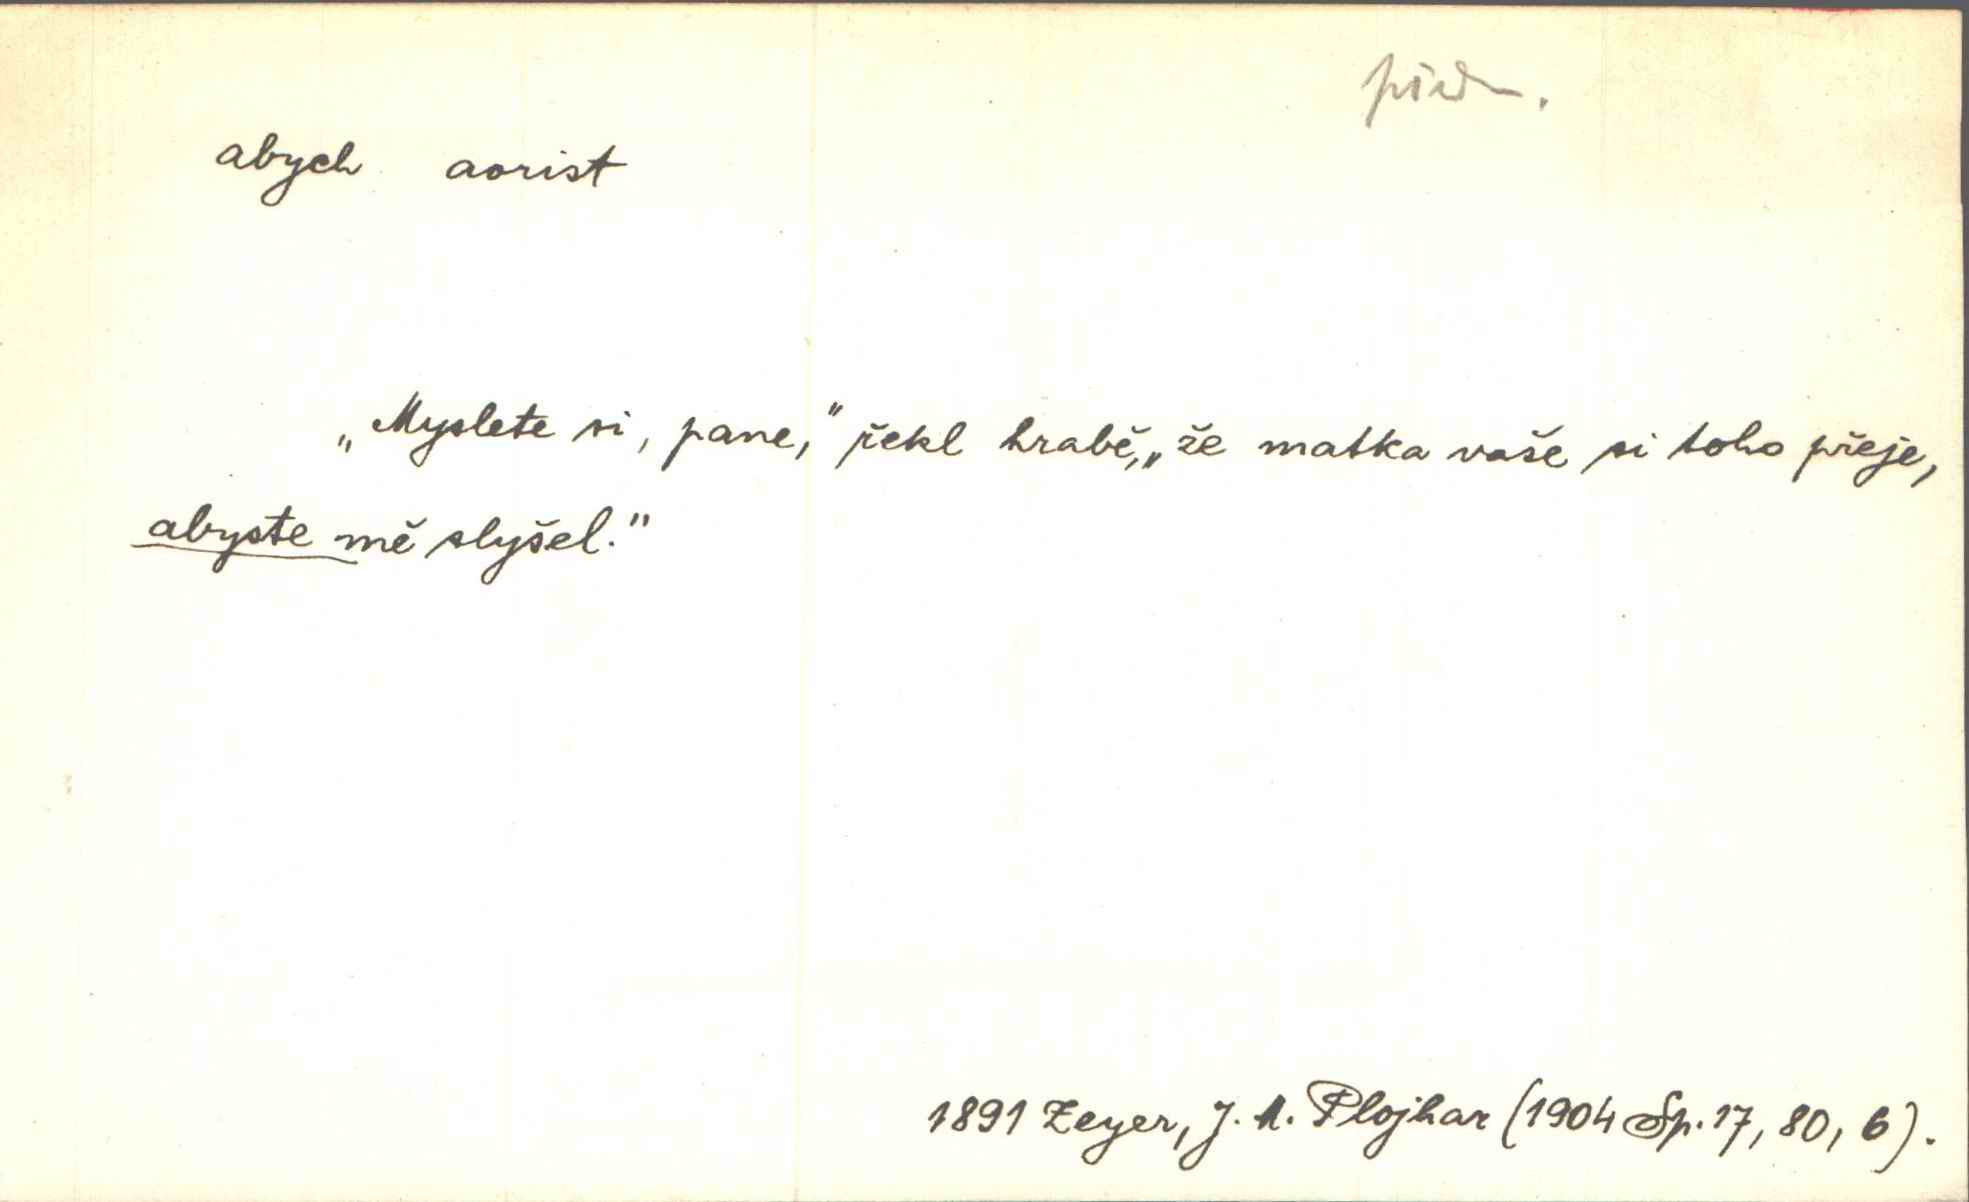 abych aorist
„Myslete si, pane,“ řekl hrabě, „že matka vaše si toho přeje,
abyste mě slyšel.“
1891 Zeyer, J. M. Plojhar (1904 Sp. 17, 80, 6).